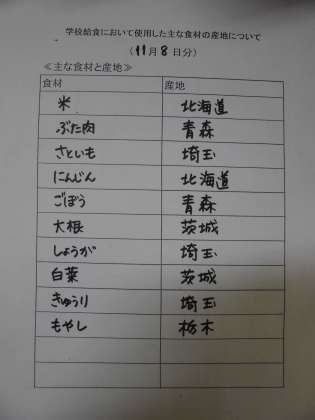 学校給食において使用した主な食材の産地について
(11月8日分)
≪主な食材と産地≫
食材 産地
米 北海道
ぶた肉 青森
さといも 埼玉
にんじん 北海道
ごぼう 青森
大根 茨城
しょうが 埼玉
白菜 茨城
きゅうり 埼玉
もやし 栃木